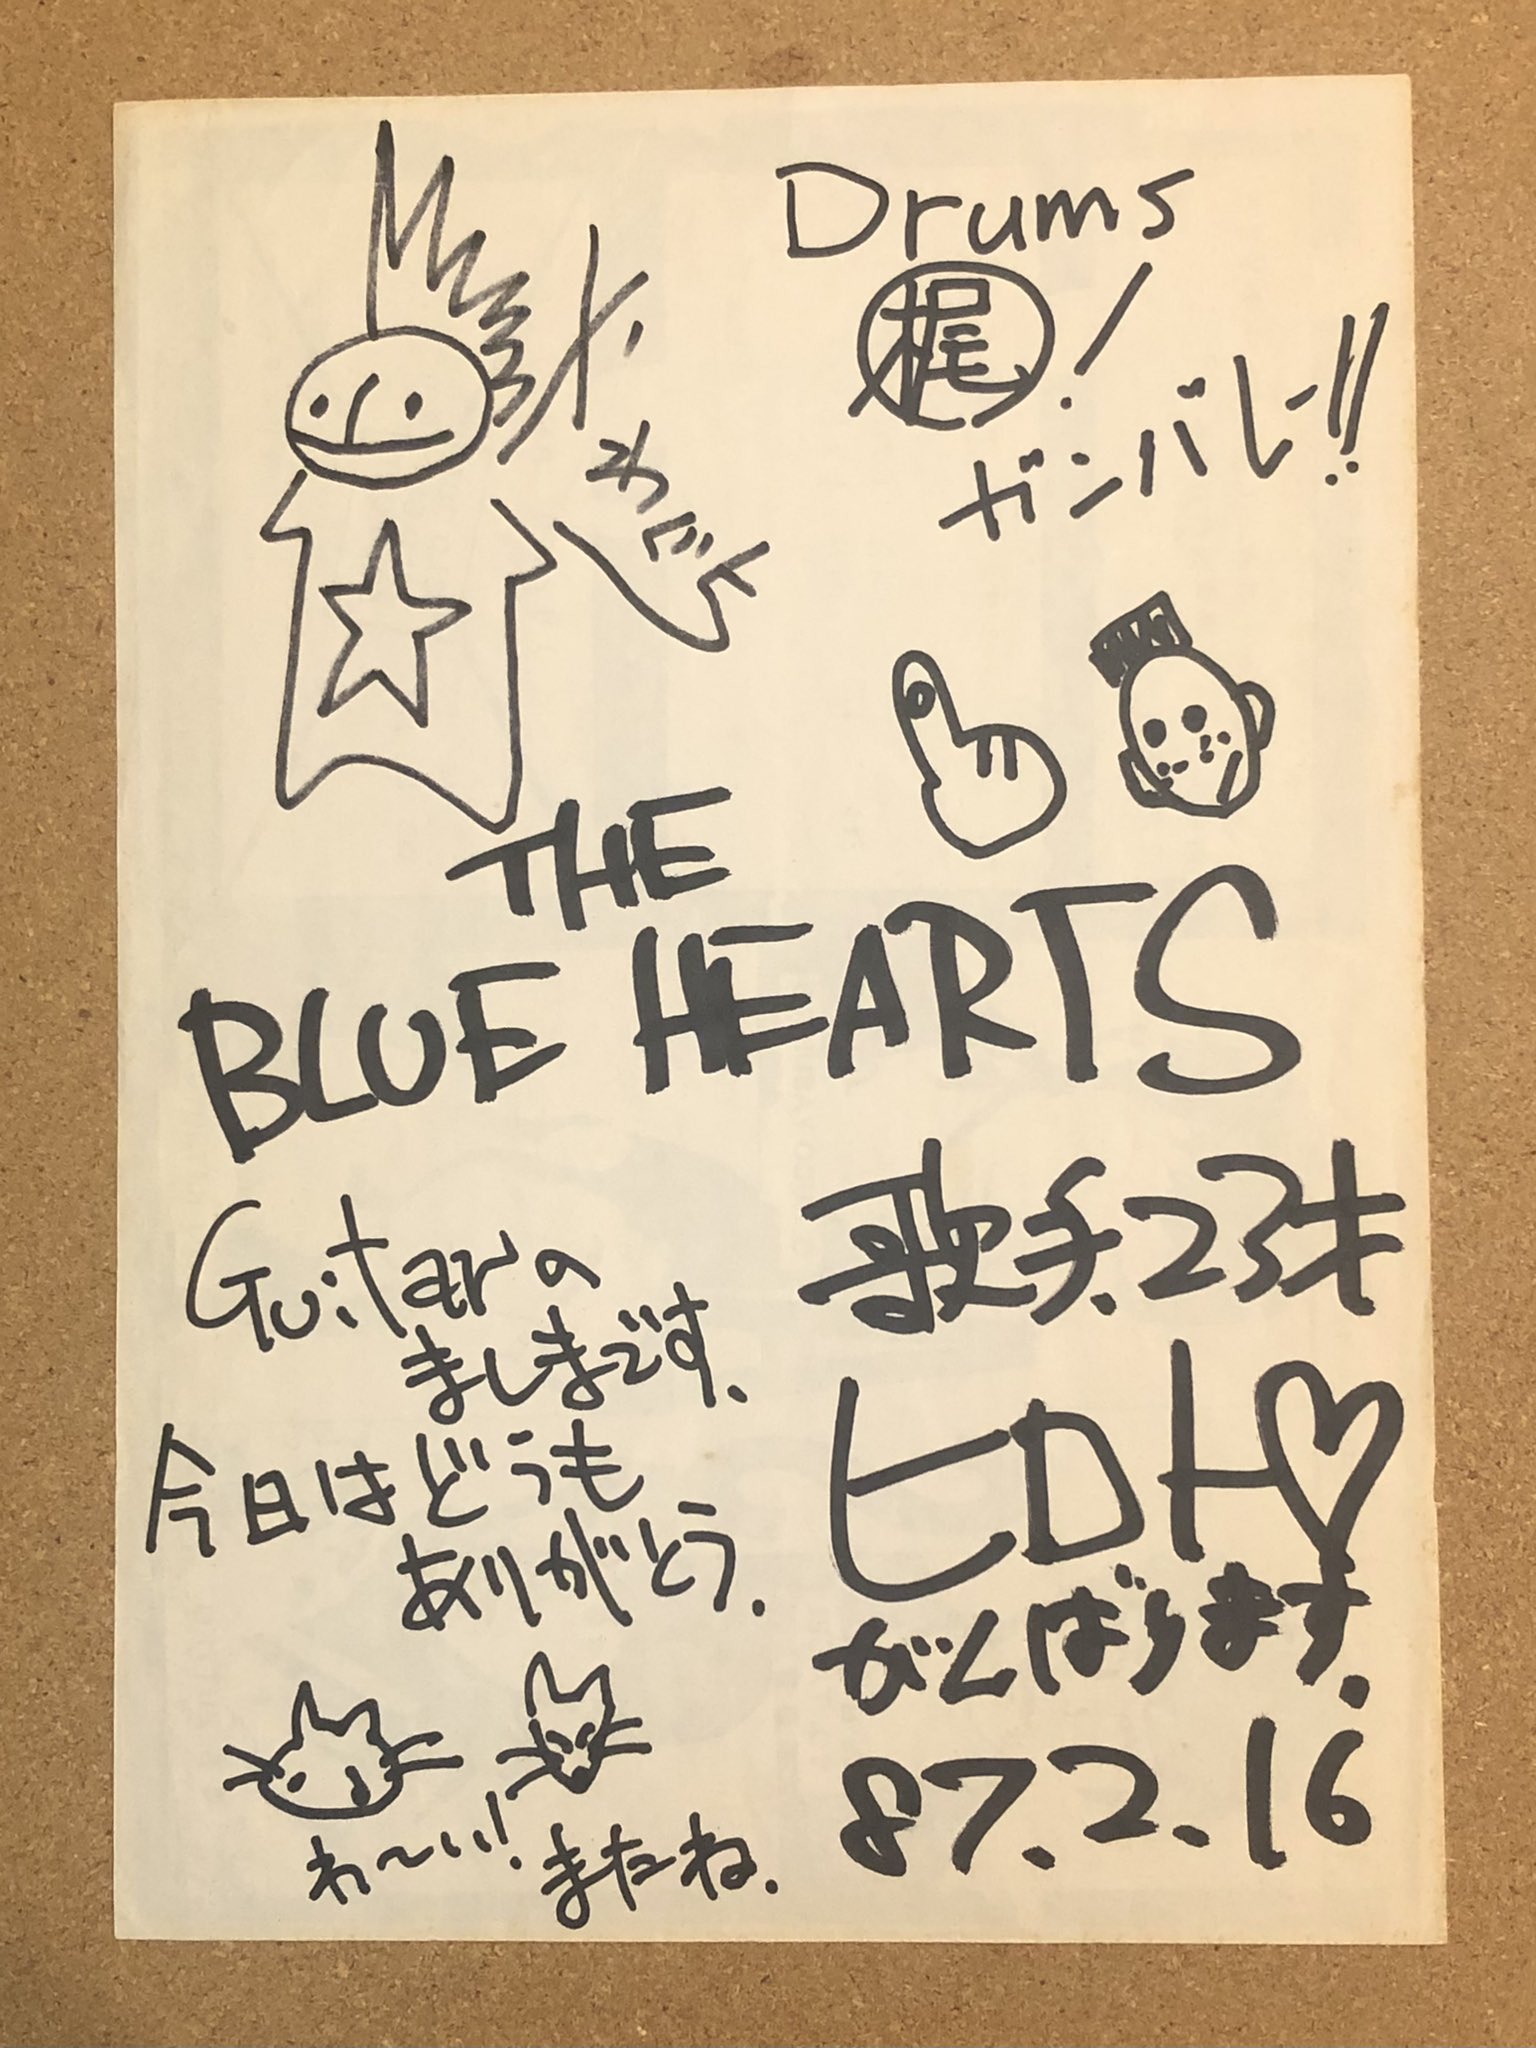 Drums
梶!
ガンバレ!!
THE
BLUE HEARTS
Guitarの
ましまです.
今日はどうも
ありがとう.
わ〜い!
またね.
歌手.23才
ヒロト
がんばります.
87.2.16